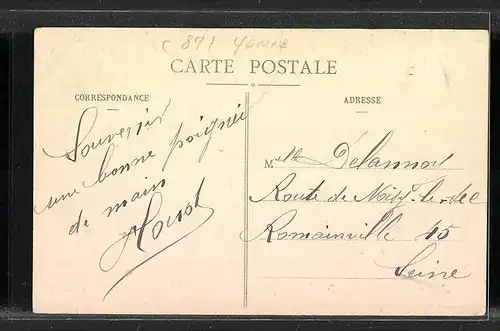 (89) YONNE
CARTE POSTALE
CORRESPONDANCE
Souvenir
une bonne poignée
de main
ADRESSE
Mlle Delannoy
Route de Noisy-le-Sec
Romainville 45
Seine